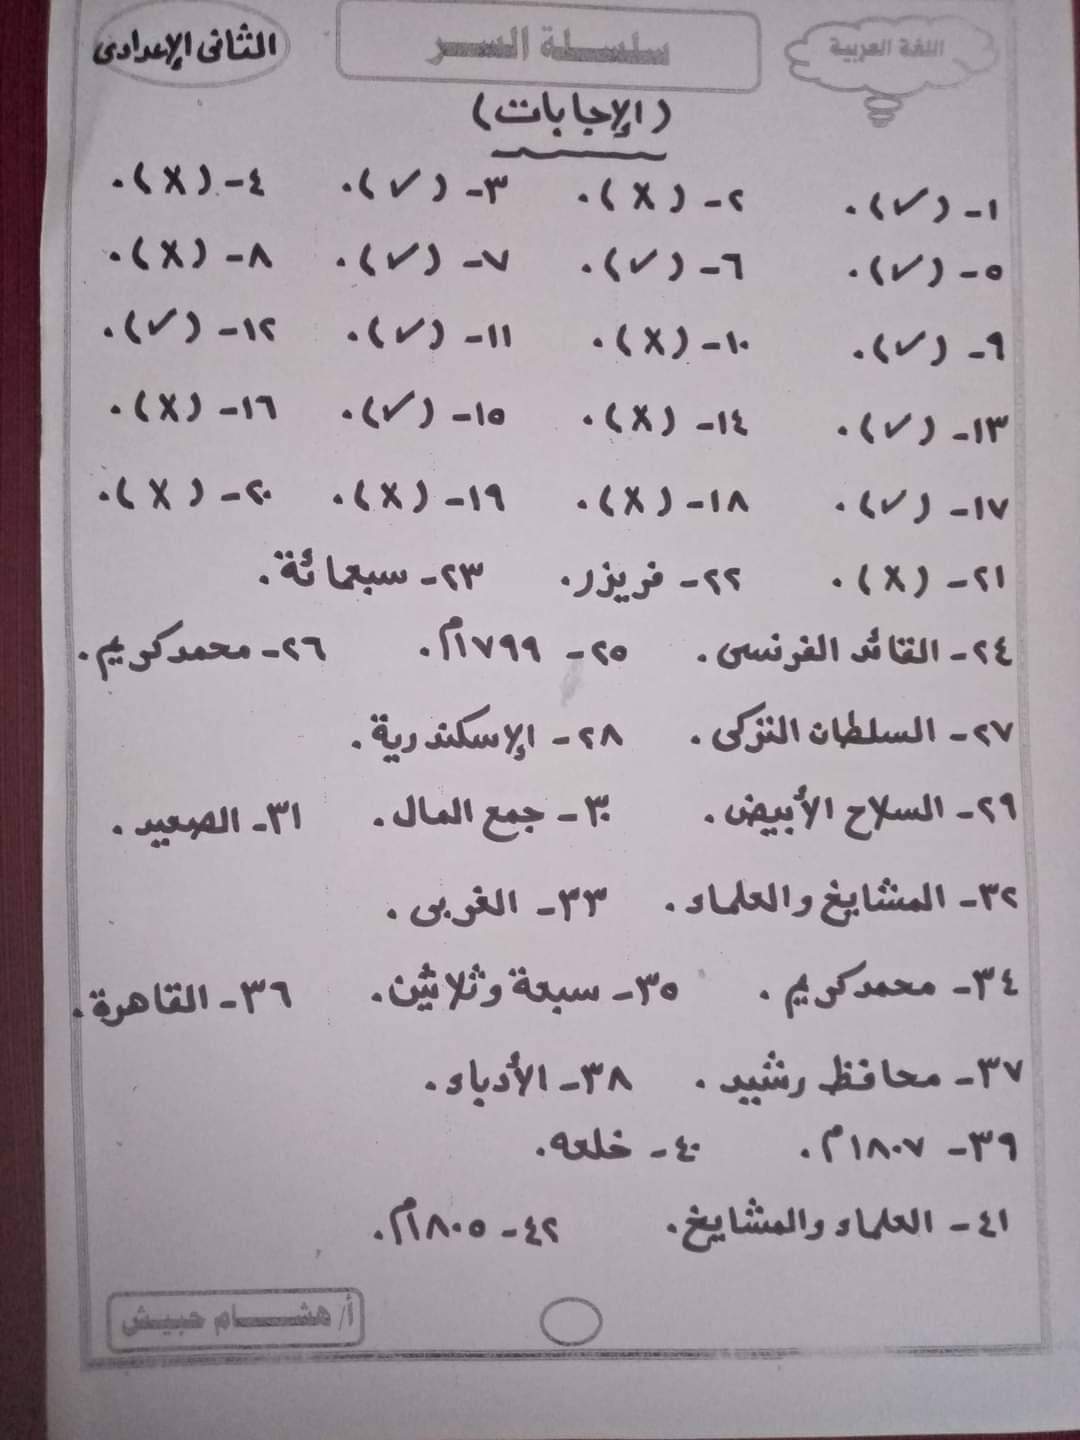 اللغة العربية
سلسلة السر
الثانى الإعدادى
(الإجابات)
١- (✓). ٢- (X). ٣- (✓). ٤- (X).
٥- (✓). ٦- (✓). ٧- (✓). ٨- (X).
٩- (✓). ١٠- (X). ١١- (✓). ١٢- (✓).
١٣- (✓). ١٤- (X). ١٥- (✓). ١٦- (X).
١٧- (✓). ١٨- (X). ١٩- (X). ٢٠- (X).
٢١- (X). ٢٢- فريزر. ٢٣- سبعمائة.
٢٤- القائد الفرنسى. ٢٥- ١٧٩٩م. ٢٦- محمد كريم.
٢٧- السلطان التركى. ٢٨- الإسكندرية.
٢٩- السلاح الأبيض. ٣٠- جمع المال. ٣١- الصعيد.
٣٢- المشايخ والعلماء. ٣٣- الغربى.
٣٤- محمد كريم. ٣٥- سبعة وثلاثين. ٣٦- القاهرة.
٣٧- محافظ رشيد. ٣٨- الأدباء.
٣٩- ١٨٠٧م. ٤٠- خلعه.
٤١- العلماء والمشايخ. ٤٢- ١٨٠٥م.
أ/ هشام حبيش